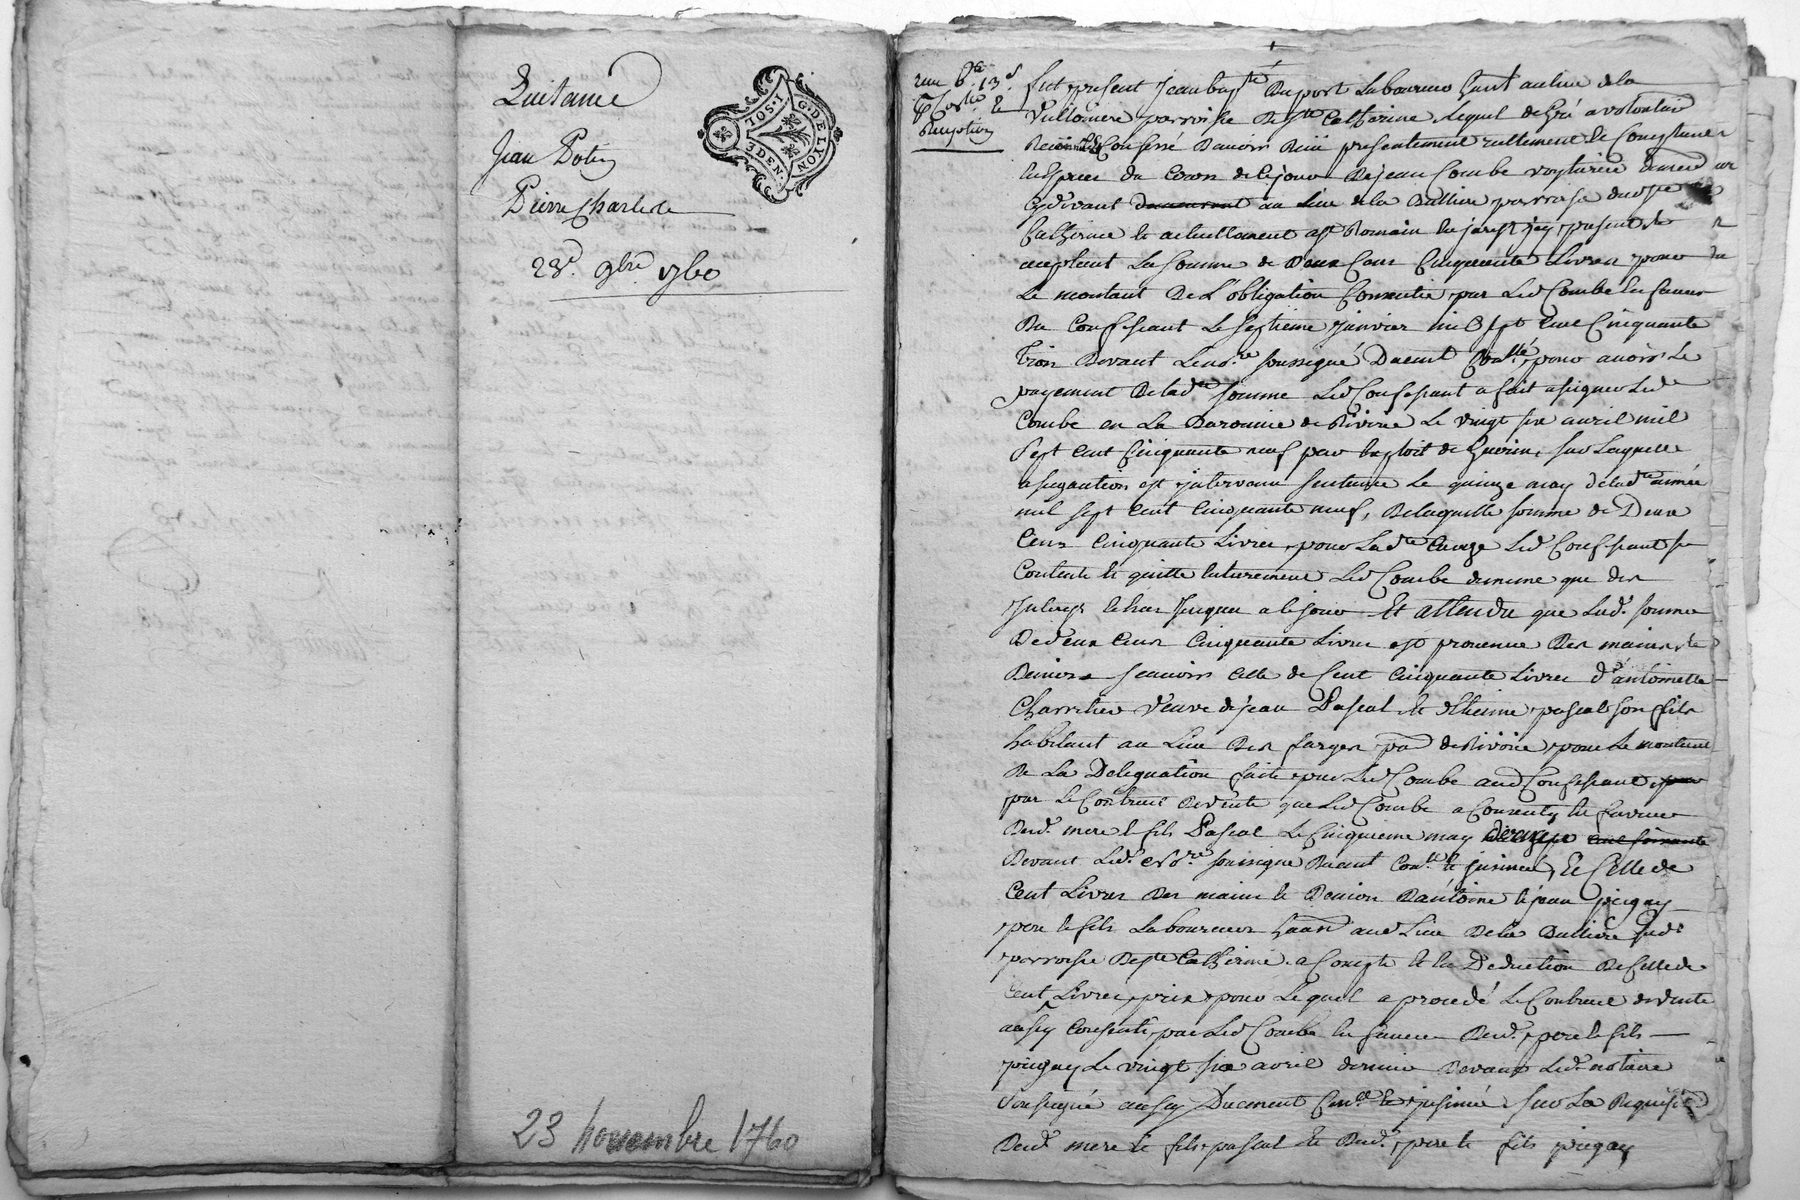 Quitance
Jean
Pierre Charle
23e. 9bre. 1760
G. DE LYON
1. SOL.
3 DEN.
23 novembre 1760
13s
Reception
fut present Jean bapte Duport Laboureur hant au lieu de la
parroisse de Ste Catherine, lequel de gré a volontairé
Confessé d'avoir Reçu presentement reellement et Comptant
En Especes du Cours de ce jour de jean Combe voyturier demeurant
cydevant au Lieu de la Bulliere parroisse dud Ste
Catherine et actuellement a St Romain En jarest jcy present et
acceptant La somme de deux Cens Cinquante Livres pour
Le montant de L'obligation Consentie par Led Combe En faveur
du Confessant Le septieme janvier mil sept Cent Cinquante
Trois devant Le nore. soussigné duemt Conllé, pour avoir Le
payement de lad somme Led Confessant a fait assigner Led
Combe en La Baronnie de Riverie Le vingt six avril mil
sept Cent Cinquante neuf par Exploit de Guerin, sur Laquelle
assignation est jntervenu sentence Le quinze may de lade année
mil sept Cent Cinquante neuf, de laquelle somme de Deux
Cens Cinquante Livres, pour Lade Cause Led Confessant se
Contente et quitte Entierement Led Combe de meme que des
jnterest Echus jusques a ce jour Et attendu que Lade somme
de deux Cens Cinquante Livres est provenue des mains et
Deniers scavoir Celle de Cent Cinquante Livres d'antoinette
Charretier Veuve de jean Pascal et Etienne pascal son fils
habitant au Lieu des farges pse de Riverie pour Le montant
de La Delegation faite par Led Combe aud Confessant
par Le Contract de vente que Led Combe a Consenty En faveur
desd. mere et fils Pascal Le Cinquieme may dernier
devant Led. Nore. soussigné duemt Conllé et jnsinué, Et Celle de
Cent Livres des mains et Deniers d'antoine et jean pigay
pere et fils Laboureurs hants aud Lieu de la Bulliere susd
parroisse de Ste Catherine a Compte et En Deduction de Celle de
Cent Livres, prix pour Lequel a procedé Le Contract de vente
aussy Consenti par Led Combe En faveur desd. pere et fils
pigay Le vingt six avril dernier devant Led. notaire
soussigné aussy Duement Conllé et jnsinué. sur La Requisition
desd. mere et fils pascal et desd. pere et fils pigay